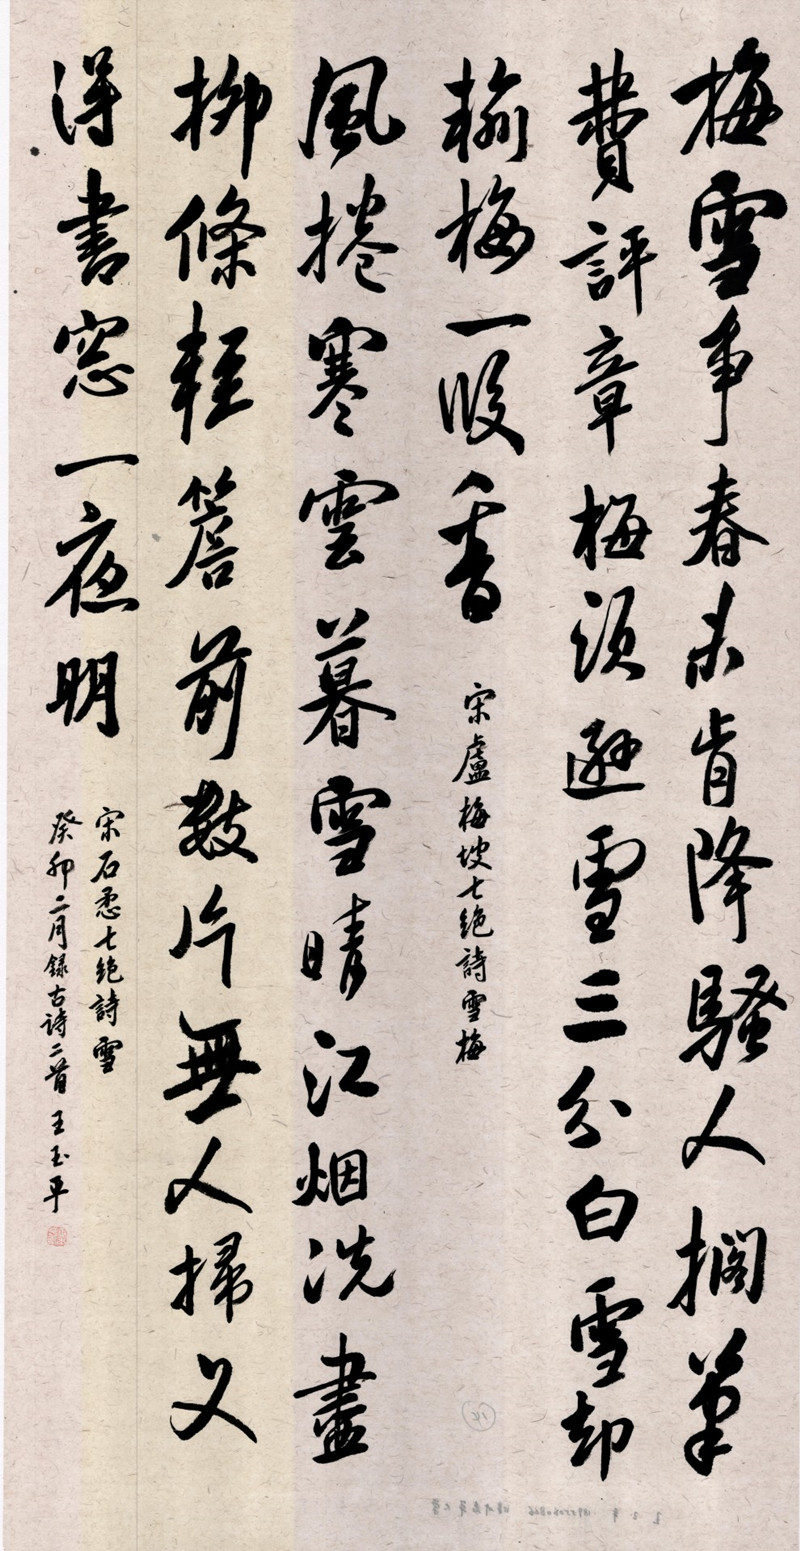 梅雪争春未肯降騷人擱筆
費評章梅須遜雪三分白雪却
輸梅一段香
宋盧梅坡七絕詩雪梅
風捲寒雲暮雪晴江烟洗盡
柳條輕簷前數片無人掃又
得書窓一夜明
宋石悉七绝詩雪
癸卯二月録古詩二首王玉平
14